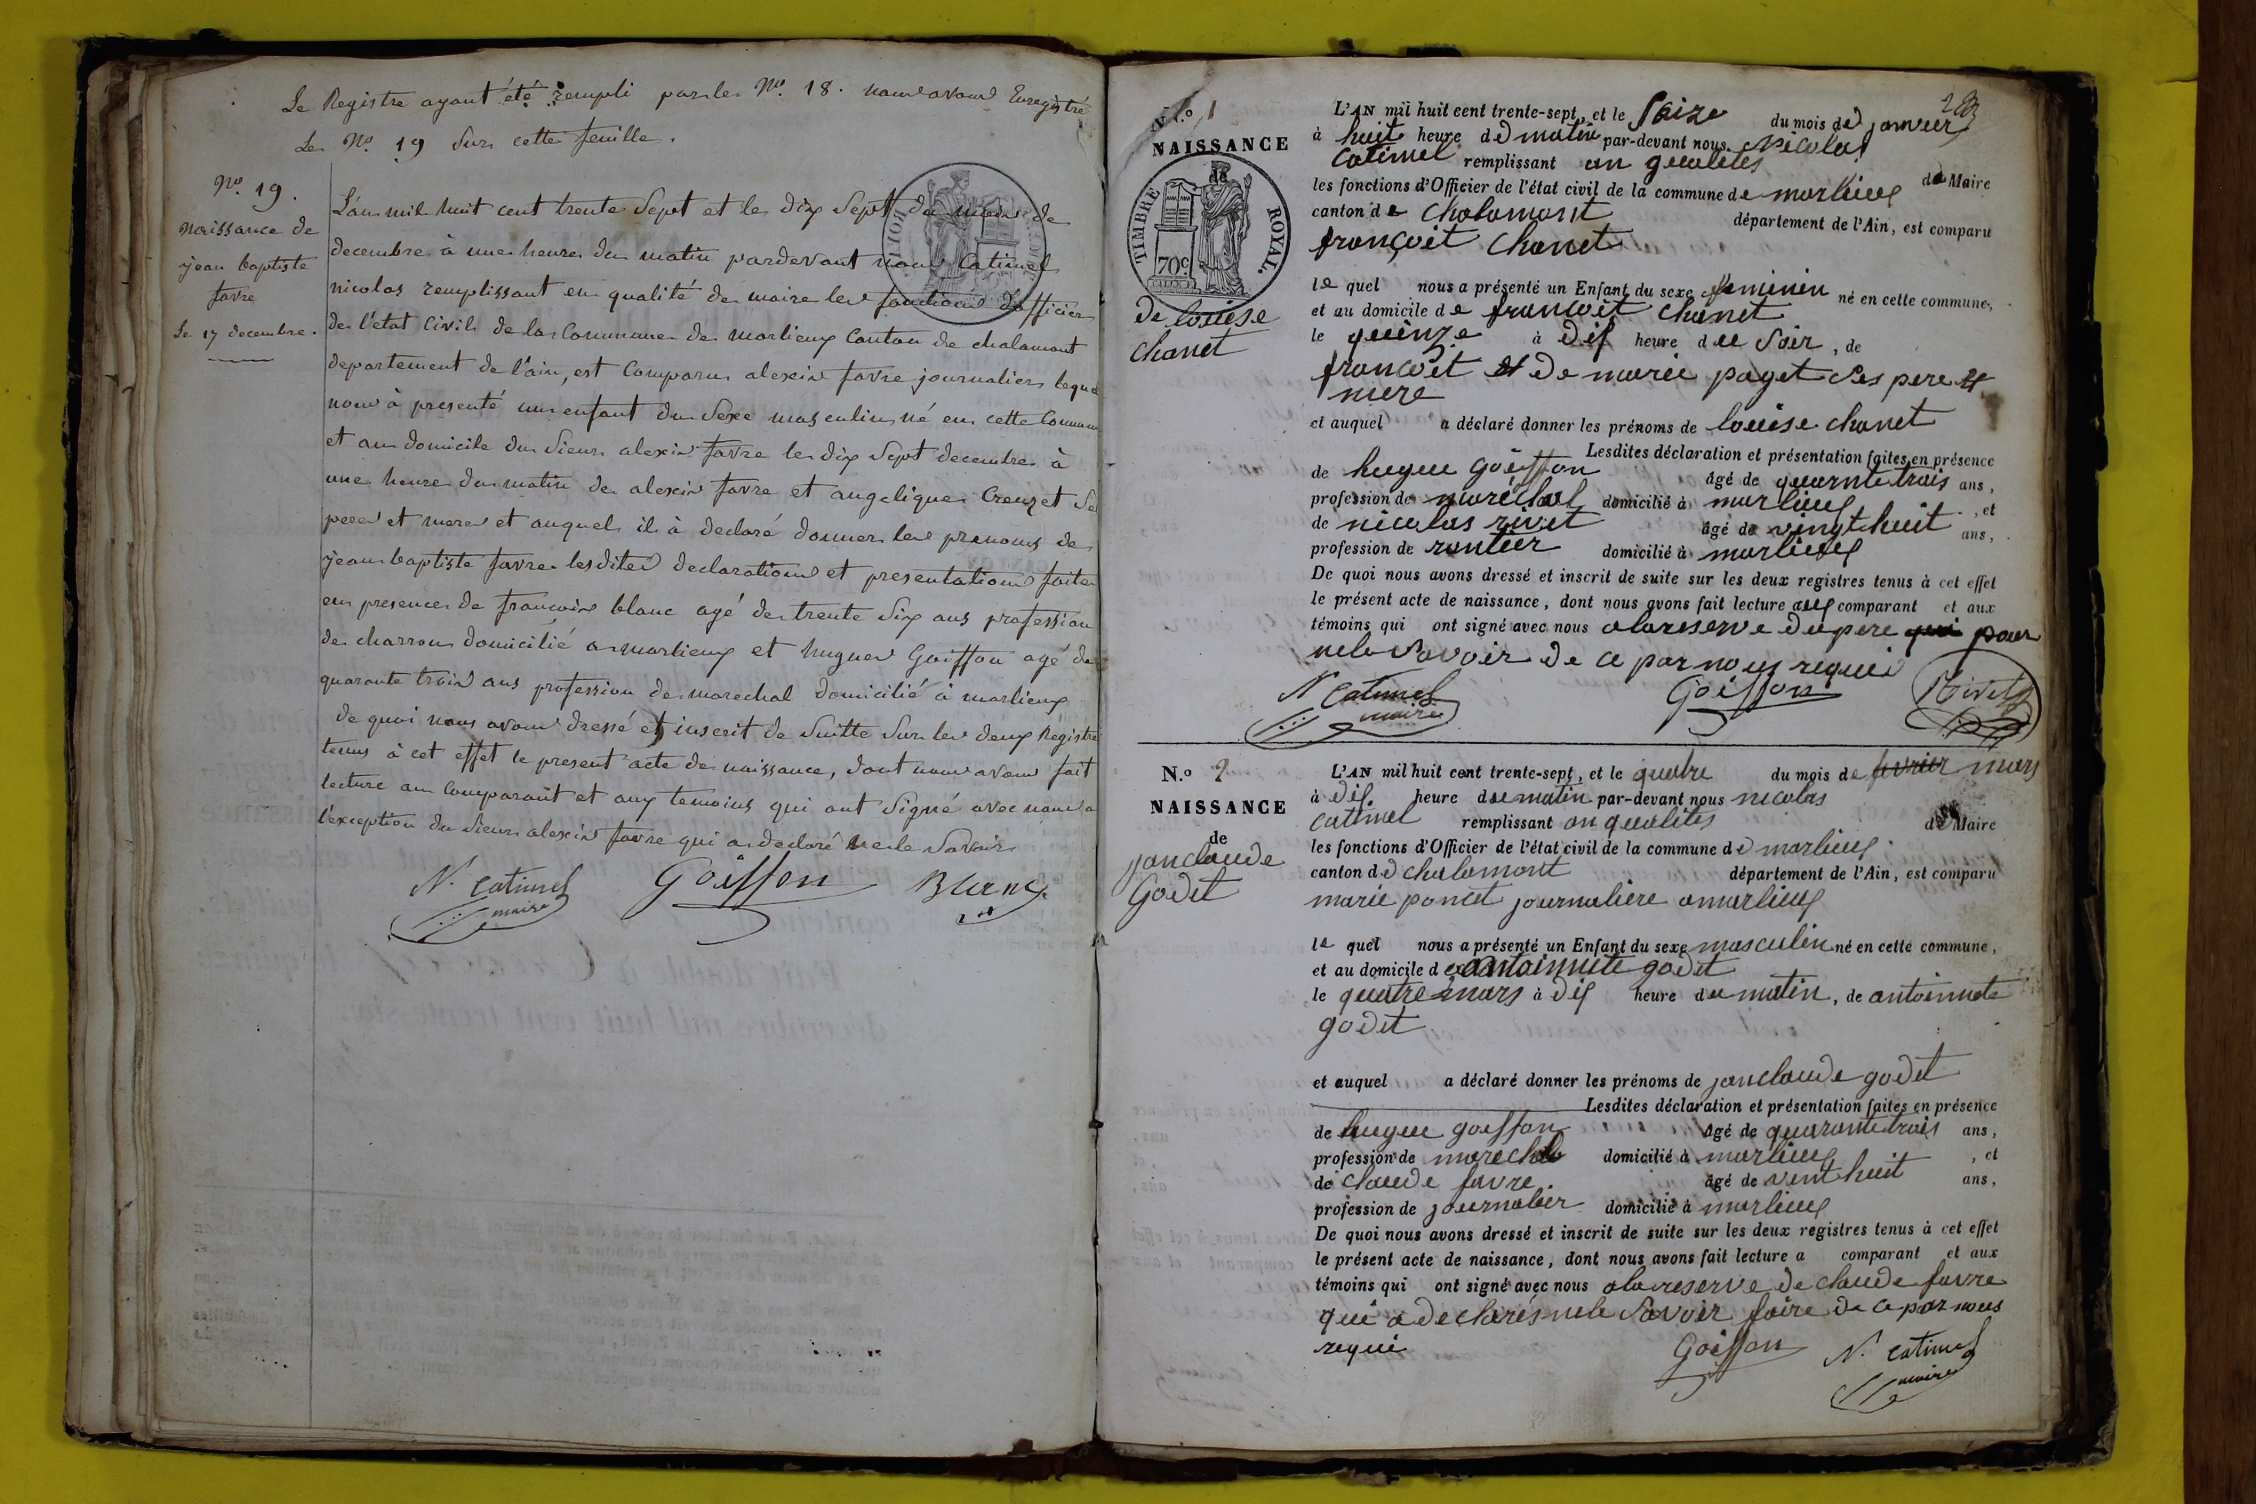 Le Registre ayant été rempli par le Nº 18. nous avons Enregistré
Le Nº 19 Sur cette feuille.
Nº 19.
naissance de
jean baptiste
favre
Le 17 decembre.
L'an mil huit cent trente Sept et le dix Sept du mois de
decembre à une heure du matin pardevant nous Catimel
nicolas remplissant en qualité de maire les fonctions d'officier
de l'etat Civil de la Commune de marlieux Canton de chalamont
departement de l'ain, est Comparu alexis favre journalier lequel
nous à presenté un enfant du Sexe masculin né en cette Commune
et au domicile du Sieur alexis favre le dix Sept decembre à
une heure du matin de alexis favre et angelique Creuzet Se
pere et mere et auquel il à declaré donner les prenoms de
jean baptiste favre lesdites declarations et presentations faites
en presence de francois blanc agé de trente Six ans profession
de charron domicilié a marlieux et hugues Goiffon agé de
quarante trois ans profession de marechal domicilié à marlieux
de quoi nous avons dressé et inscrit de Suitte Sur les deux Registre
tenus à cet effet le present acte de naissance, dont nous avons fait
lecture au Comparant et aux temoins qui ont Signé avec nous a
l'exception du Sieur alexis favre qui a declaré ne le Savoir
N. Catimel
maire
Goiffon
Blanc
N.º 1
NAISSANCE
TIMBRE ROYAL.
70c
de louise
chanet
L'AN mil huit cent trente-sept, et le Saize du mois de janvier
à huit heure de matin par-devant nous Nicolas
Catimel remplissant an qualites de Maire
les fonctions d'Officier de l'état civil de la commune de marlieux
canton de Chalamont département de l'Ain, est comparu
françoit Chanet
le quel nous a présenté un Enfant du sexe feminin né en cette commune,
et au domicile de françoit chanet
le quinze à dix heure du Soir, de
françoit et de marie paget Ses pere et
mere
et auquel a déclaré donner les prénoms de louise chanet
Lesdites déclaration et présentation faites en présence
de hugue Goiffon âgé de quarnte trais ans,
profession de maréchal domicilié à marlieux, et
de nicolas rivet âgé de vingt huit ans,
profession de rantier domicilié à marlieux
De quoi nous avons dressé et inscrit de suite sur les deux registres tenus à cet effet
le présent acte de naissance, dont nous avons fait lecture aux comparant et aux
témoins qui ont signé avec nous a la reserve du pere qui pour
ne le Savoir de ce par nous requi
N Catimel
maire
Goiffon
Rivet
N.º 2
NAISSANCE
de
jan claude
Godet
L'AN mil huit cent trente-sept, et le quatre du mois de fevrier mars
à dix heure du matin par-devant nous nicolas
Catimel remplissant an qualites de Maire
les fonctions d'Officier de l'état civil de la commune de marlieux
canton de chalamont département de l'Ain, est comparu
marie poncet journaliere a marlieux
le quel nous a présenté un Enfant du sexe masculin né en cette commune,
et au domicile de antoinnete godet
le quatre mars à dix heure du matin, de antoinnete
godet
et auquel a déclaré donner les prénoms de jan claude godet
Lesdites déclaration et présentation faites en présence
de hugue goiffon âgé de quarante trais ans,
profession de marechal domicilié à marlieux, et
de claude favre âgé de vint huit ans,
profession de journalier domicilié à marlieux
De quoi nous avons dressé et inscrit de suite sur les deux registres tenus à cet effet
le présent acte de naissance, dont nous avons fait lecture a comparant et aux
témoins qui ont signé avec nous a la reserve de claude favre
qui a declarés ne le Savoir faire de ce par nous
requi
Goiffon
N. Catimel
maire